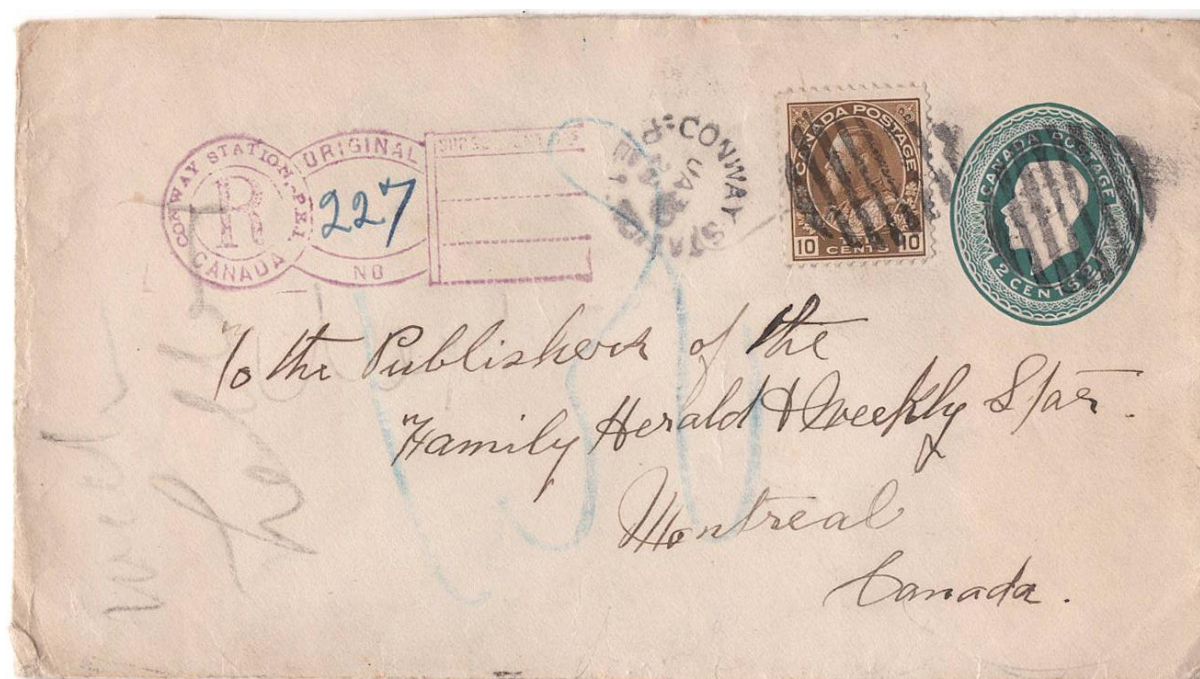 CONWAY STATION, P.E.I.
R
CANADA
ORIGINAL
227
NO
CONWAY STA
JA 30
CANADA POSTAGE
10 CENTS 10
CANADA POSTAGE
2 CENTS
To the Publishers of the
Family Herald & Weekly Star.
Montreal
Canada.